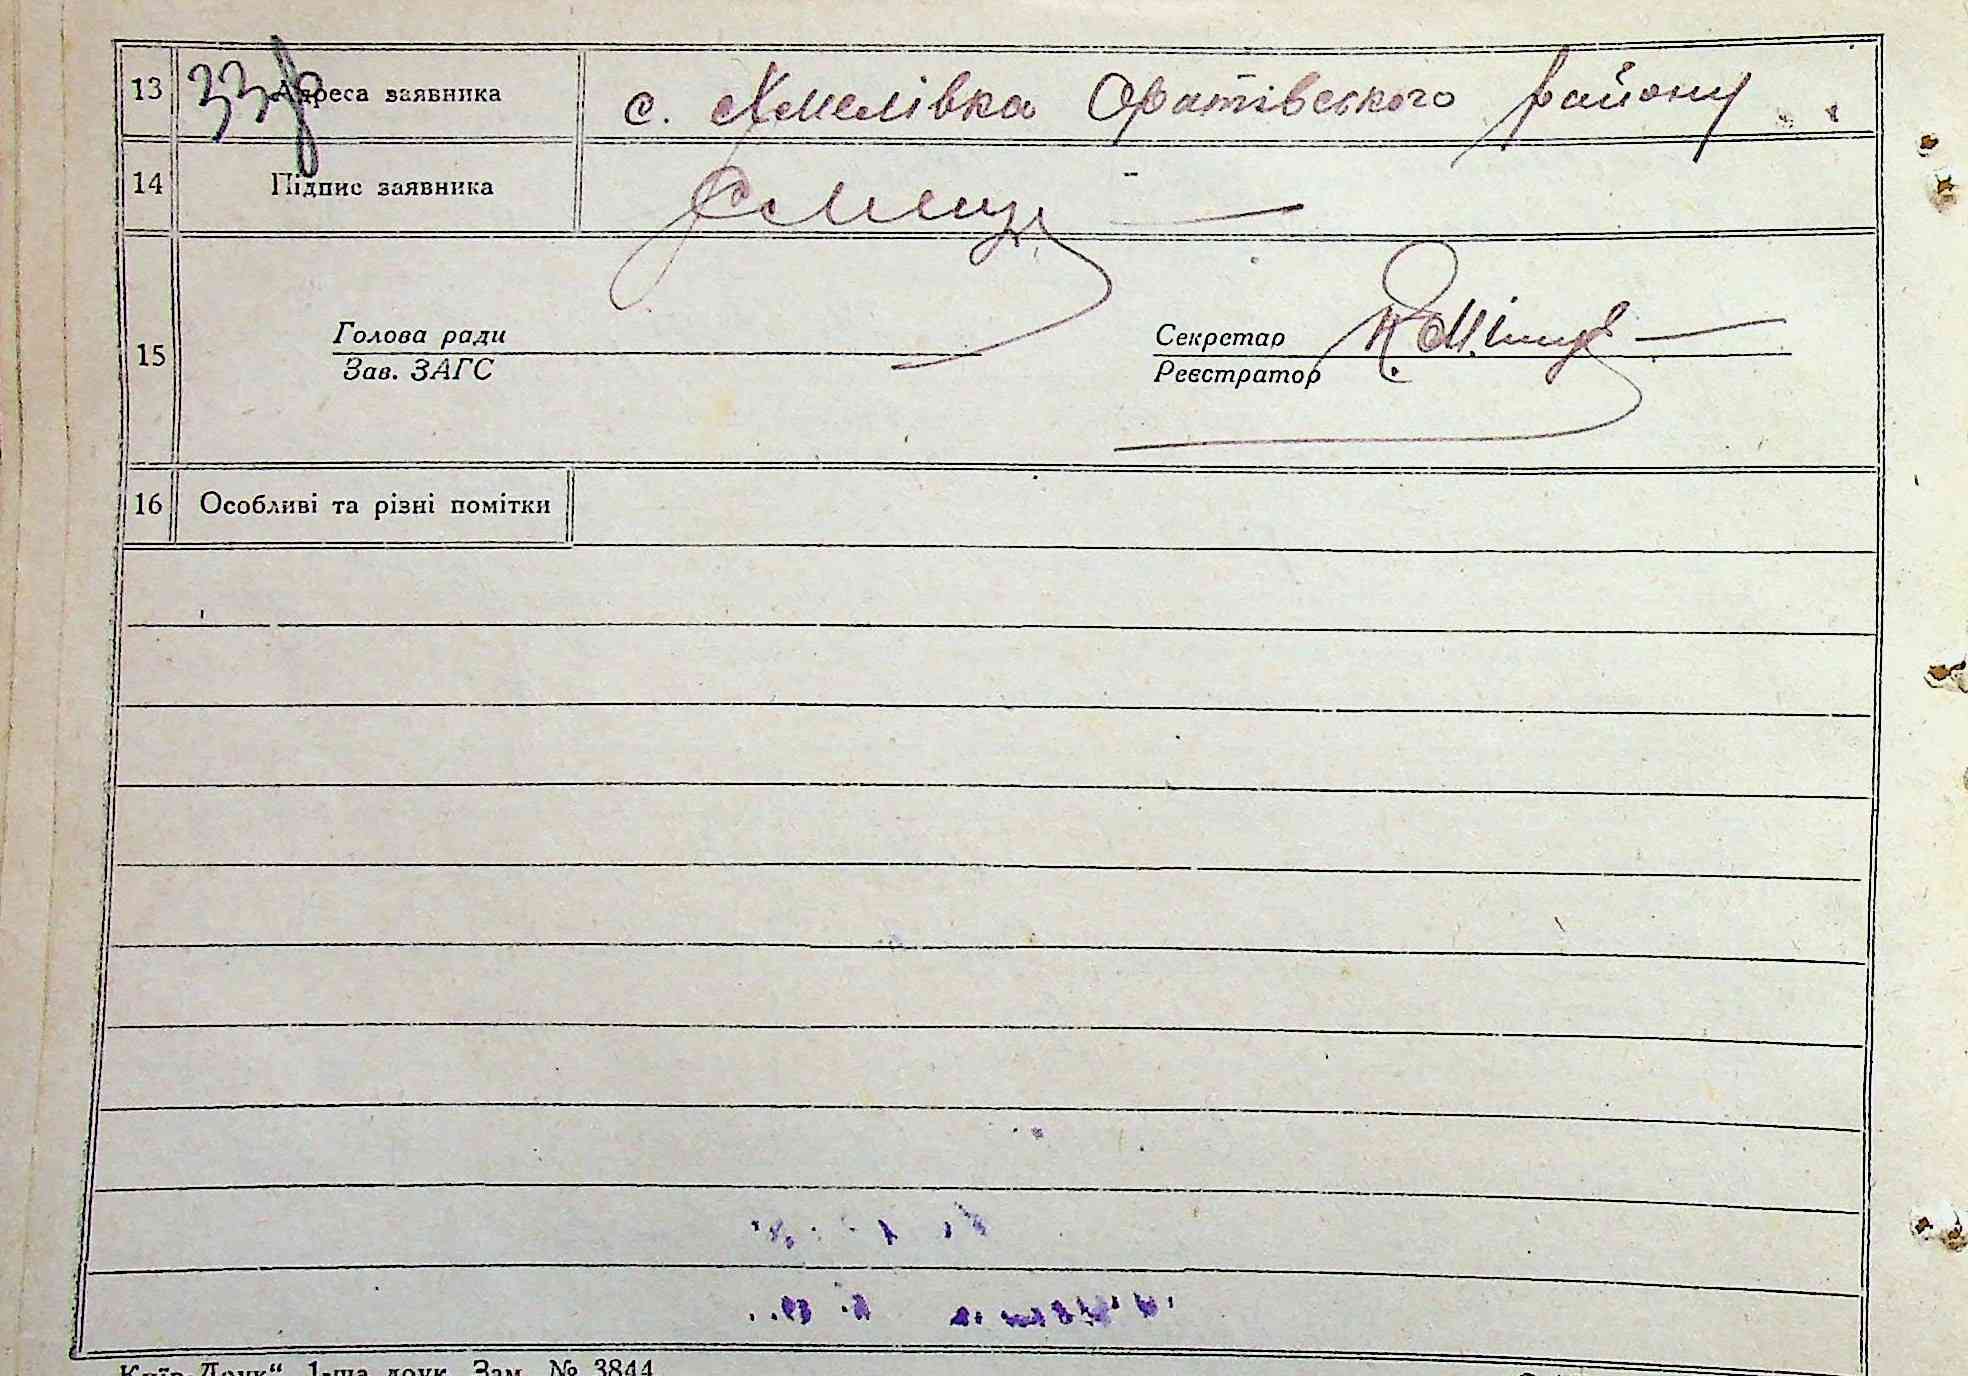 13 33 Адреса заявника с. Хмелівка Оратівського району
14 Підпис заявника
15 Голова ради
Зав. ЗАГС
Секретар
Реєстратор
16 Особливі та різні помітки
Зам. № 3844